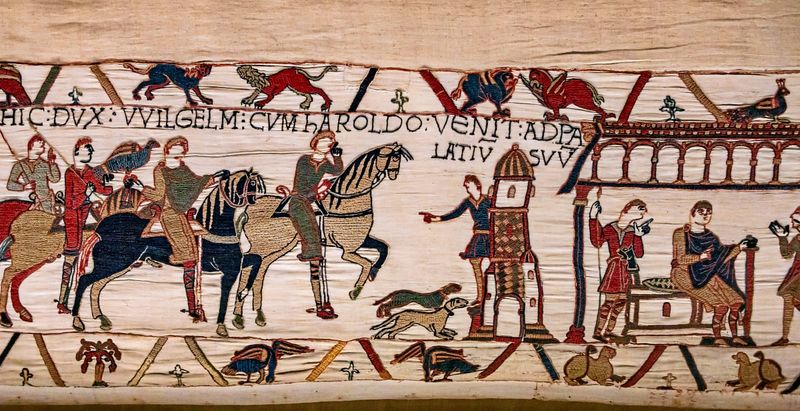 HIC: DVX: VVILGELM: CVM hAROLDO: VENIT: AD PA
LATIV̄ SVV̄